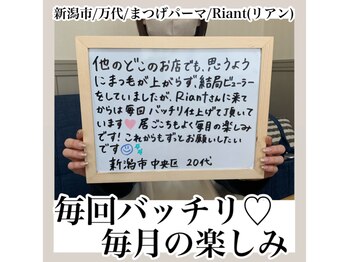 新潟市/万代/まつげパーマ/Riant(リアン)
他のどこのお店でも、思うよう
にまつ毛が上がらず、結局ビューラー
をしていましたが、Riantさんに来て
からは毎回バッチリ仕上げて頂いて
います♡居ごこちもよく毎月の楽しみ
です!これからもずっとお願いしたい
です☺
新潟市中央区 20代
毎回バッチリ♡
毎月の楽しみ